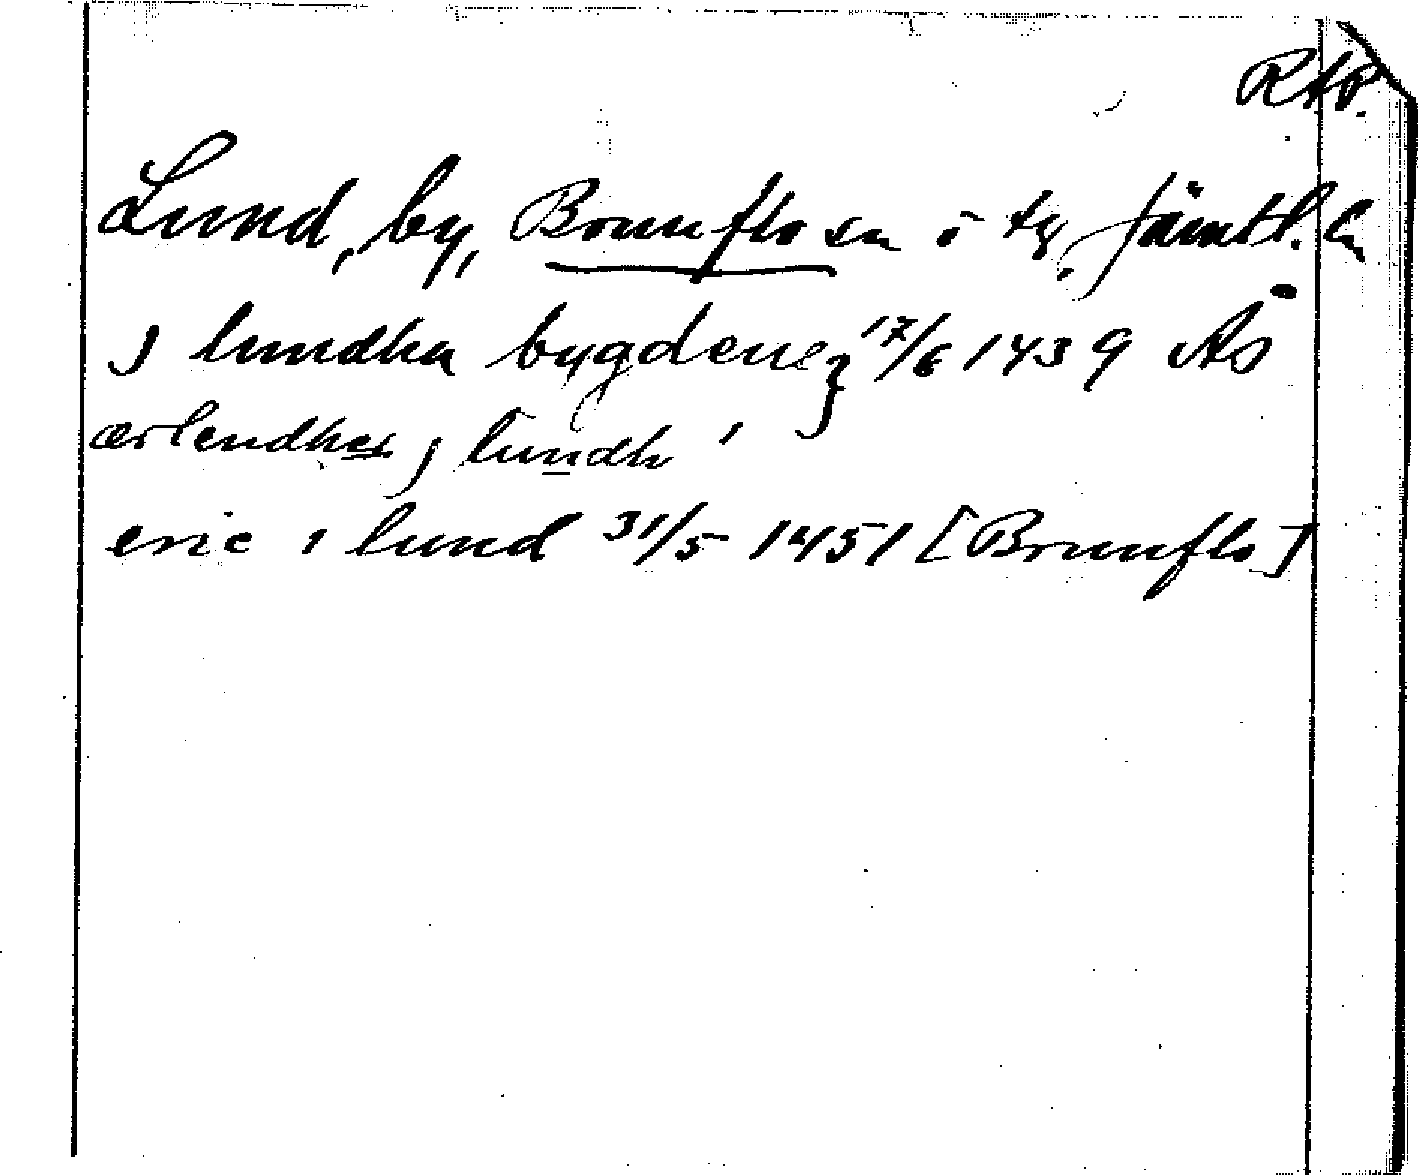 RAP.
Lund, by, Brunflo sn ö tg, Jämtl. ln
j lundha bygdene } 17/6 1439 Ås
ærlendher j lundh
eric i lund 31/5 1451 [Brunflo]